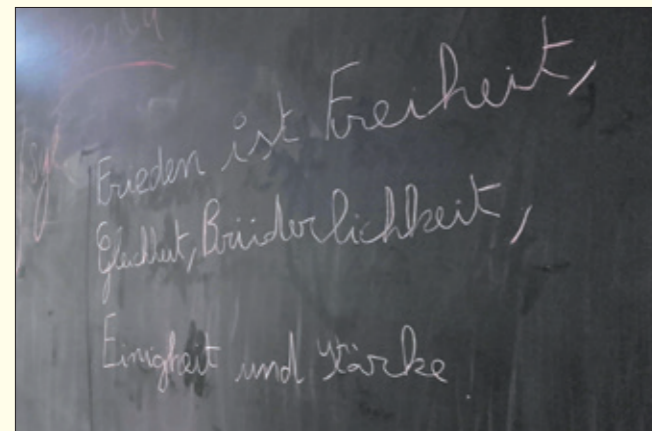 Frieden ist Freiheit,
Gleichheit, Brüderlichkeit,
Einigkeit und Stärke.